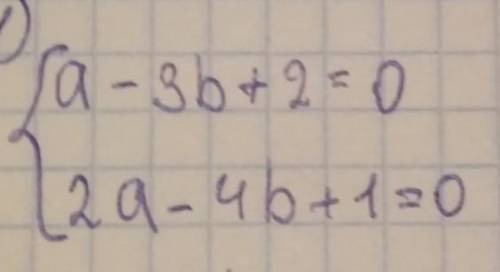 1)
a - 3b + 2 = 0
2a - 4b + 1 = 0